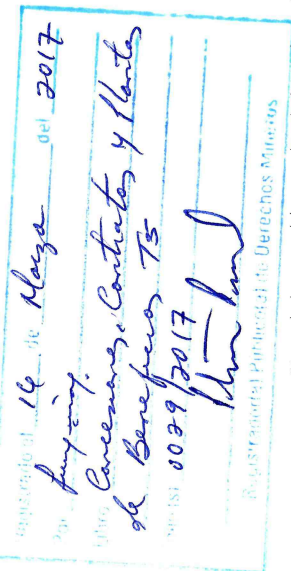 Registrado el 16 de Marzo del 2017
Por
Libro Concesiones, Contratos y Plantas
de Beneficios T5
0029/2017
Registrador(a) Público(a) de Derechos Mineros